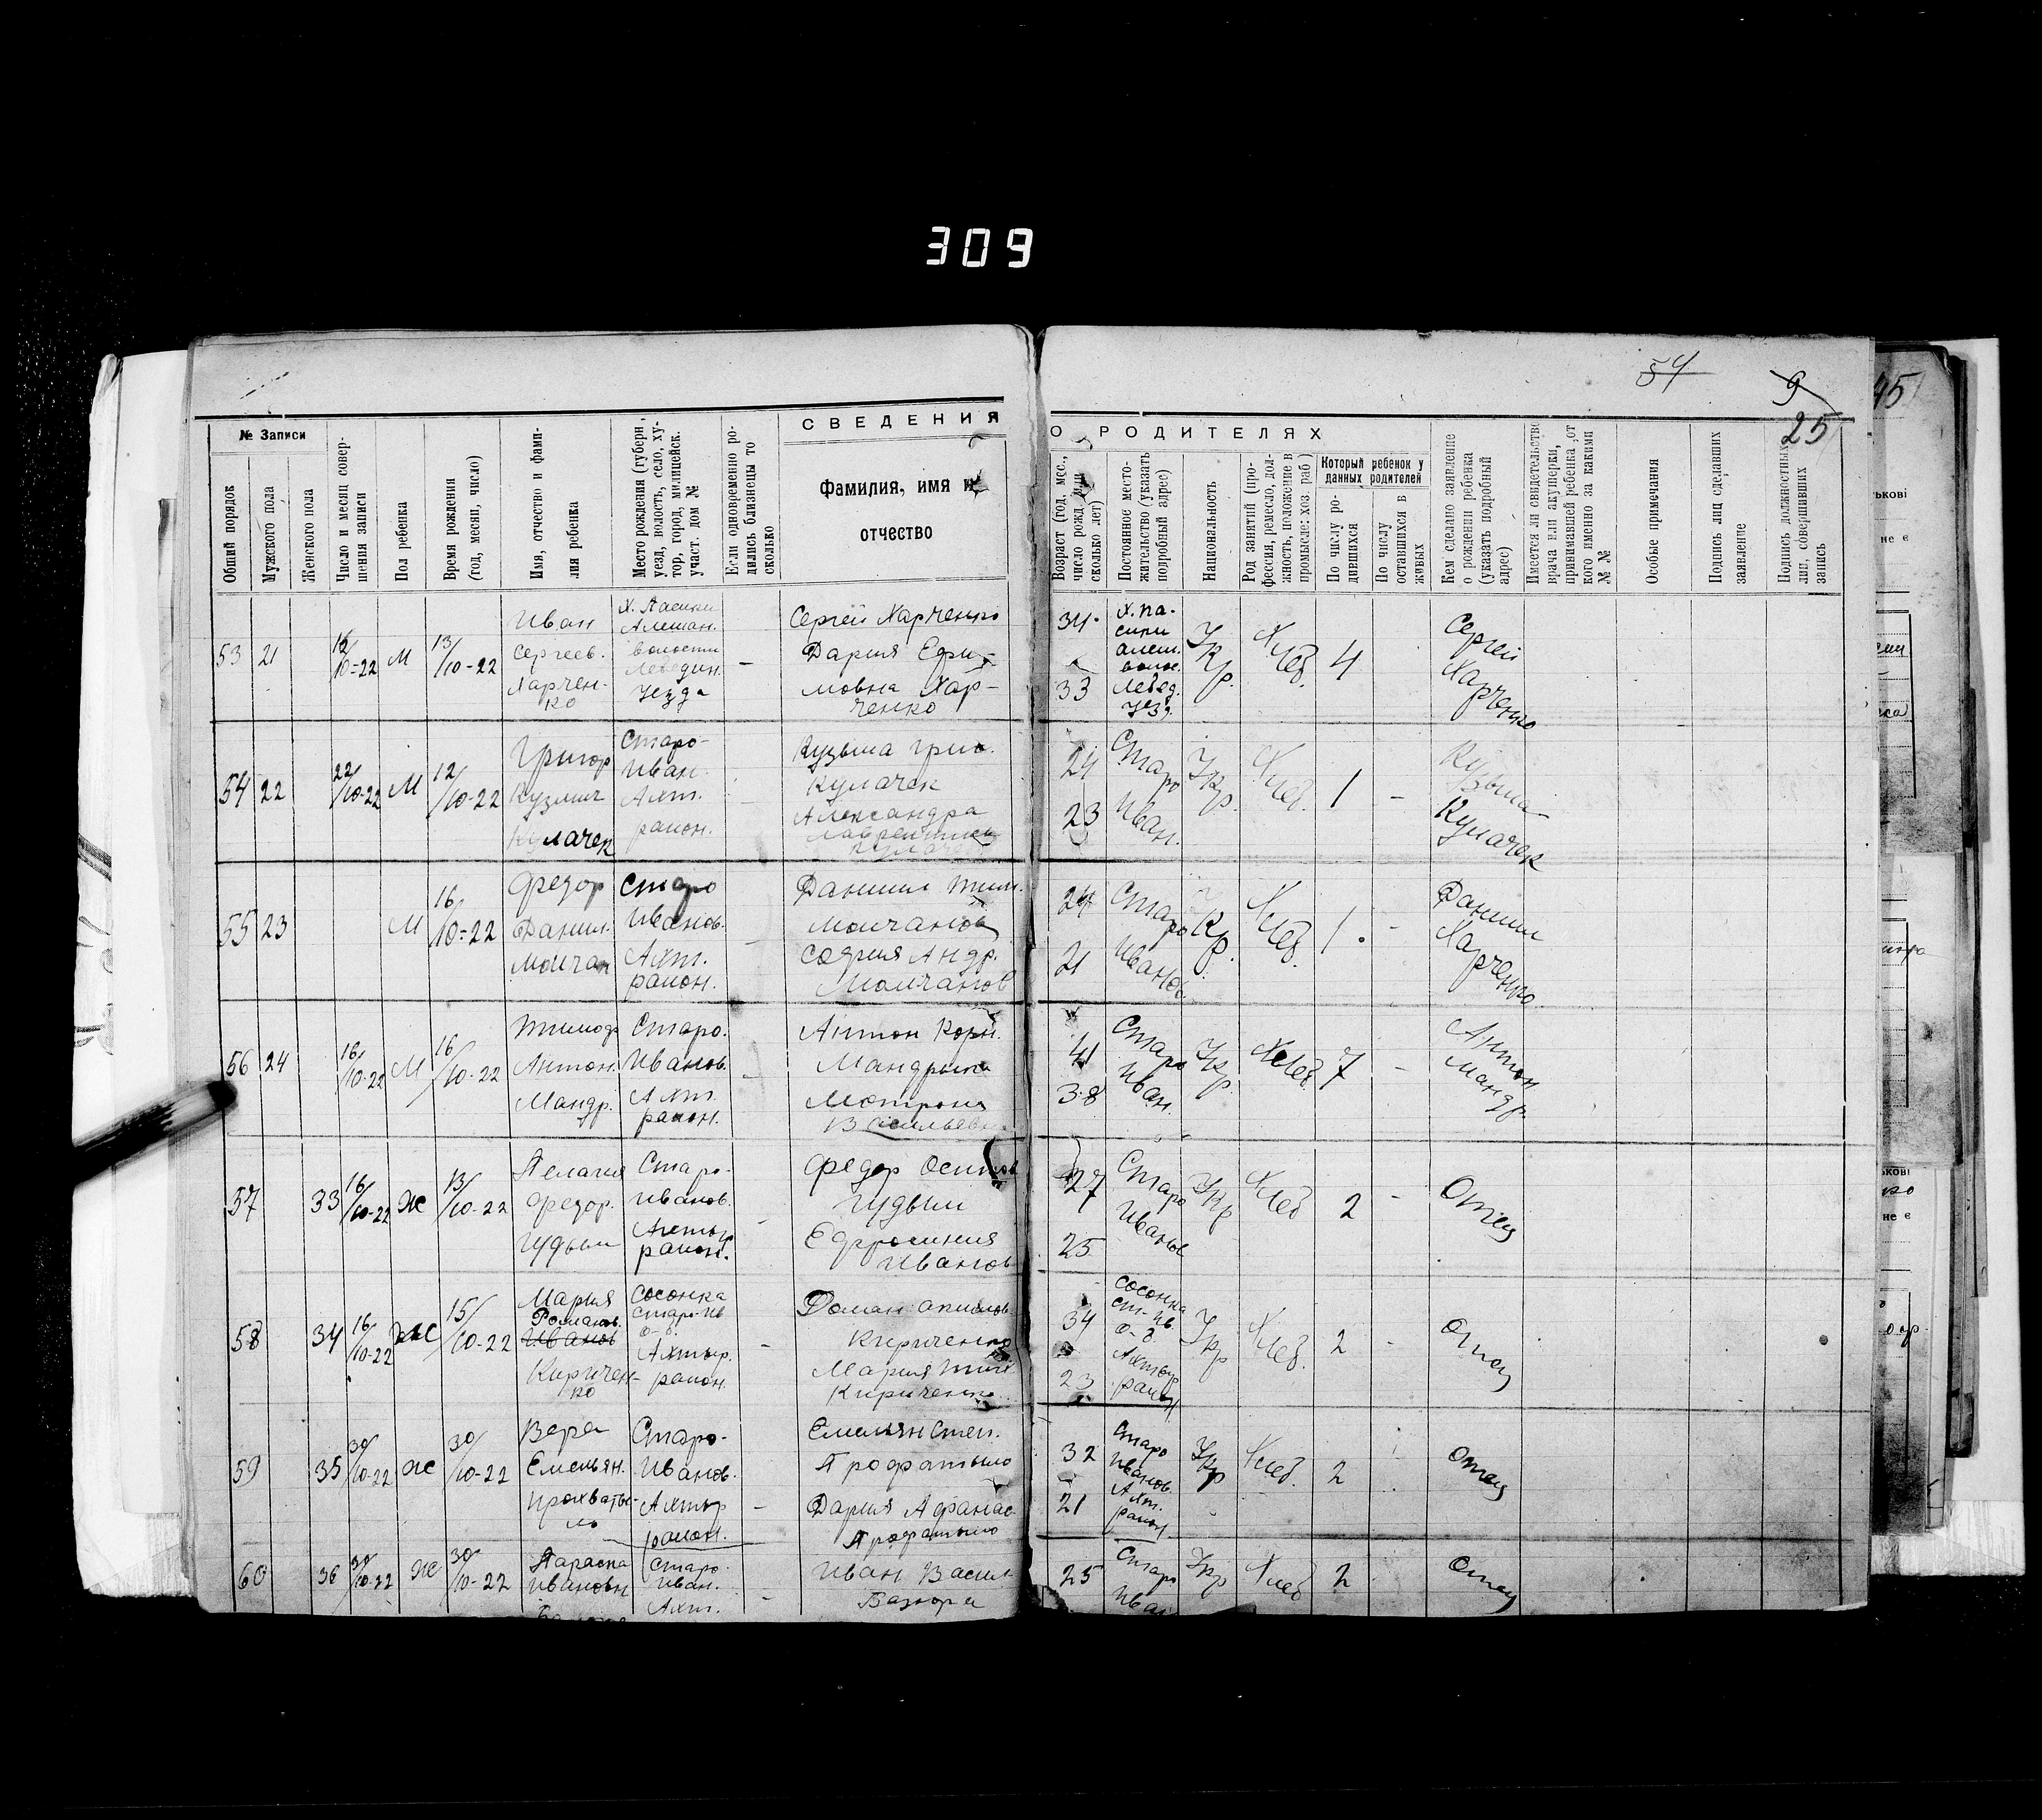 309
54
9
25
45
СВЕДЕНИЯ
О РОДИТЕЛЯХ
№ Записи
Общий порядок
Мужского пола
Женского пола
Число и месяц совер-
шения записи
Пол ребенка
Время рождения
(год, месяц, число)
Имя, отчество и фами-
лия ребенка
Место рождения (губерн.,
уезд, волость, село, ху-
тор, город, милицейск.
участ. дом №
Если одновременно ро-
дились близнецы то
сколько
Фамилия, имя и
отчество
Возраст (год, мес.,
число рожд. или
сколько лет)
Постоянное место-
жительство (указать
подробный адрес)
Национальность
Род занятий (про-
фессия, ремесло, дол-
жность, положение в
промысле: хоз. раб)
Который ребенок у
данных родителей
По числу ро-
дившихся
По числу
оставшихся в
живых
Кем сделано заявление
о рождении ребенка
(указать подробный
адрес)
Имеется ли свидетельство
врача или акушерки,
принимавшей ребенка, от
кого именно за каким
№ №
Особые примечания
Подпись лиц сделавших
заявление
Подпись должностных
лиц, совершивших
запись
53
21
16/10-22
М
13/10-22
Иван
Сергеев.
Харчен-
ко
Х. Пасики
Алешан.
волости
Лебедин.
Уезда
-
Сергей Харченко
Дария Ефи-
мовна Хар-
ченко
34
33
Х. Па-
сики
алеш.
волос.
Лебед.
Уезд.
Укр.
Хлеб.
4
Сергей
Харченко
54
22
22/10-22
М
12/10-22
Григор
Кузмич
Кулачек
Старо-
Иван.
Ахт.
район.
-
Кузьма Григ.
Кулачек
Александра
24
23
Старо
Иван.
Укр.
Хлеб.
1
-
Кузьма
Кулачек
55
23
М
16/10-22
Федор
Данил.
Молчан
Старо
Иванов.
Ахт.
район.
-
Даниил Тим.
Молчанов
София Андр.
Молчанов
24
21
Старо
Иванов.
Укр.
Хлеб.
1.
-
Даниил
Харченко
56
24
16/10-22
М
16/10-22
Тимоф
Антон.
Мандр.
Старо.
Иванов.
Ахт.
район.
-
Антон Корн.
Мандрыка
Мотрона
Васильевн
41
38
Старо
Иван.
Укр.
Хлеб.
7
-
Антон
Мандр.
57
33
16/10-22
Ж
13/10-22
Пелагия
Федор.
Гудым
Старо-
Иванов.
Ахтыр
район.
-
Федор Осипов
Гудым
Ефросиния
Иванов
27
25
Старо
Иванов
Укр
Хлеб
2
-
Отец
58
34
16/10-22
Ж
15/10-22
Мария
Романов.
Иванов
Киричен-
ко
Сосонка
Стар-Ив
о-в.
Ахтыр.
район.
-
Роман Акимов
Кириченко
Мария Тим
Кириченко
34
23
Сосонка
Ст-Ив.
о-в.
Ахтыр
район
Укр
Хлеб.
2
-
Отец
59
35
30/10-22
Ж
30/10-22
Вера
Емельян.
Прохваты-
ло
Старо-
Иванов.
Ахтыр
район.
-
Емельян Степ.
Профатыло
Дария Афанас
Профатыло
32
21
Старо
Иванов.
Ахт.
район
Укр
Хлеб.
2
Отец
60
36
30/10-22
Ж
30/10-22
Параска
Ивановн
Старо-
Иван.
Ахт.
-
Иван Васил
25
Старо
Иван
Укр
Хлеб
2
-
Отец